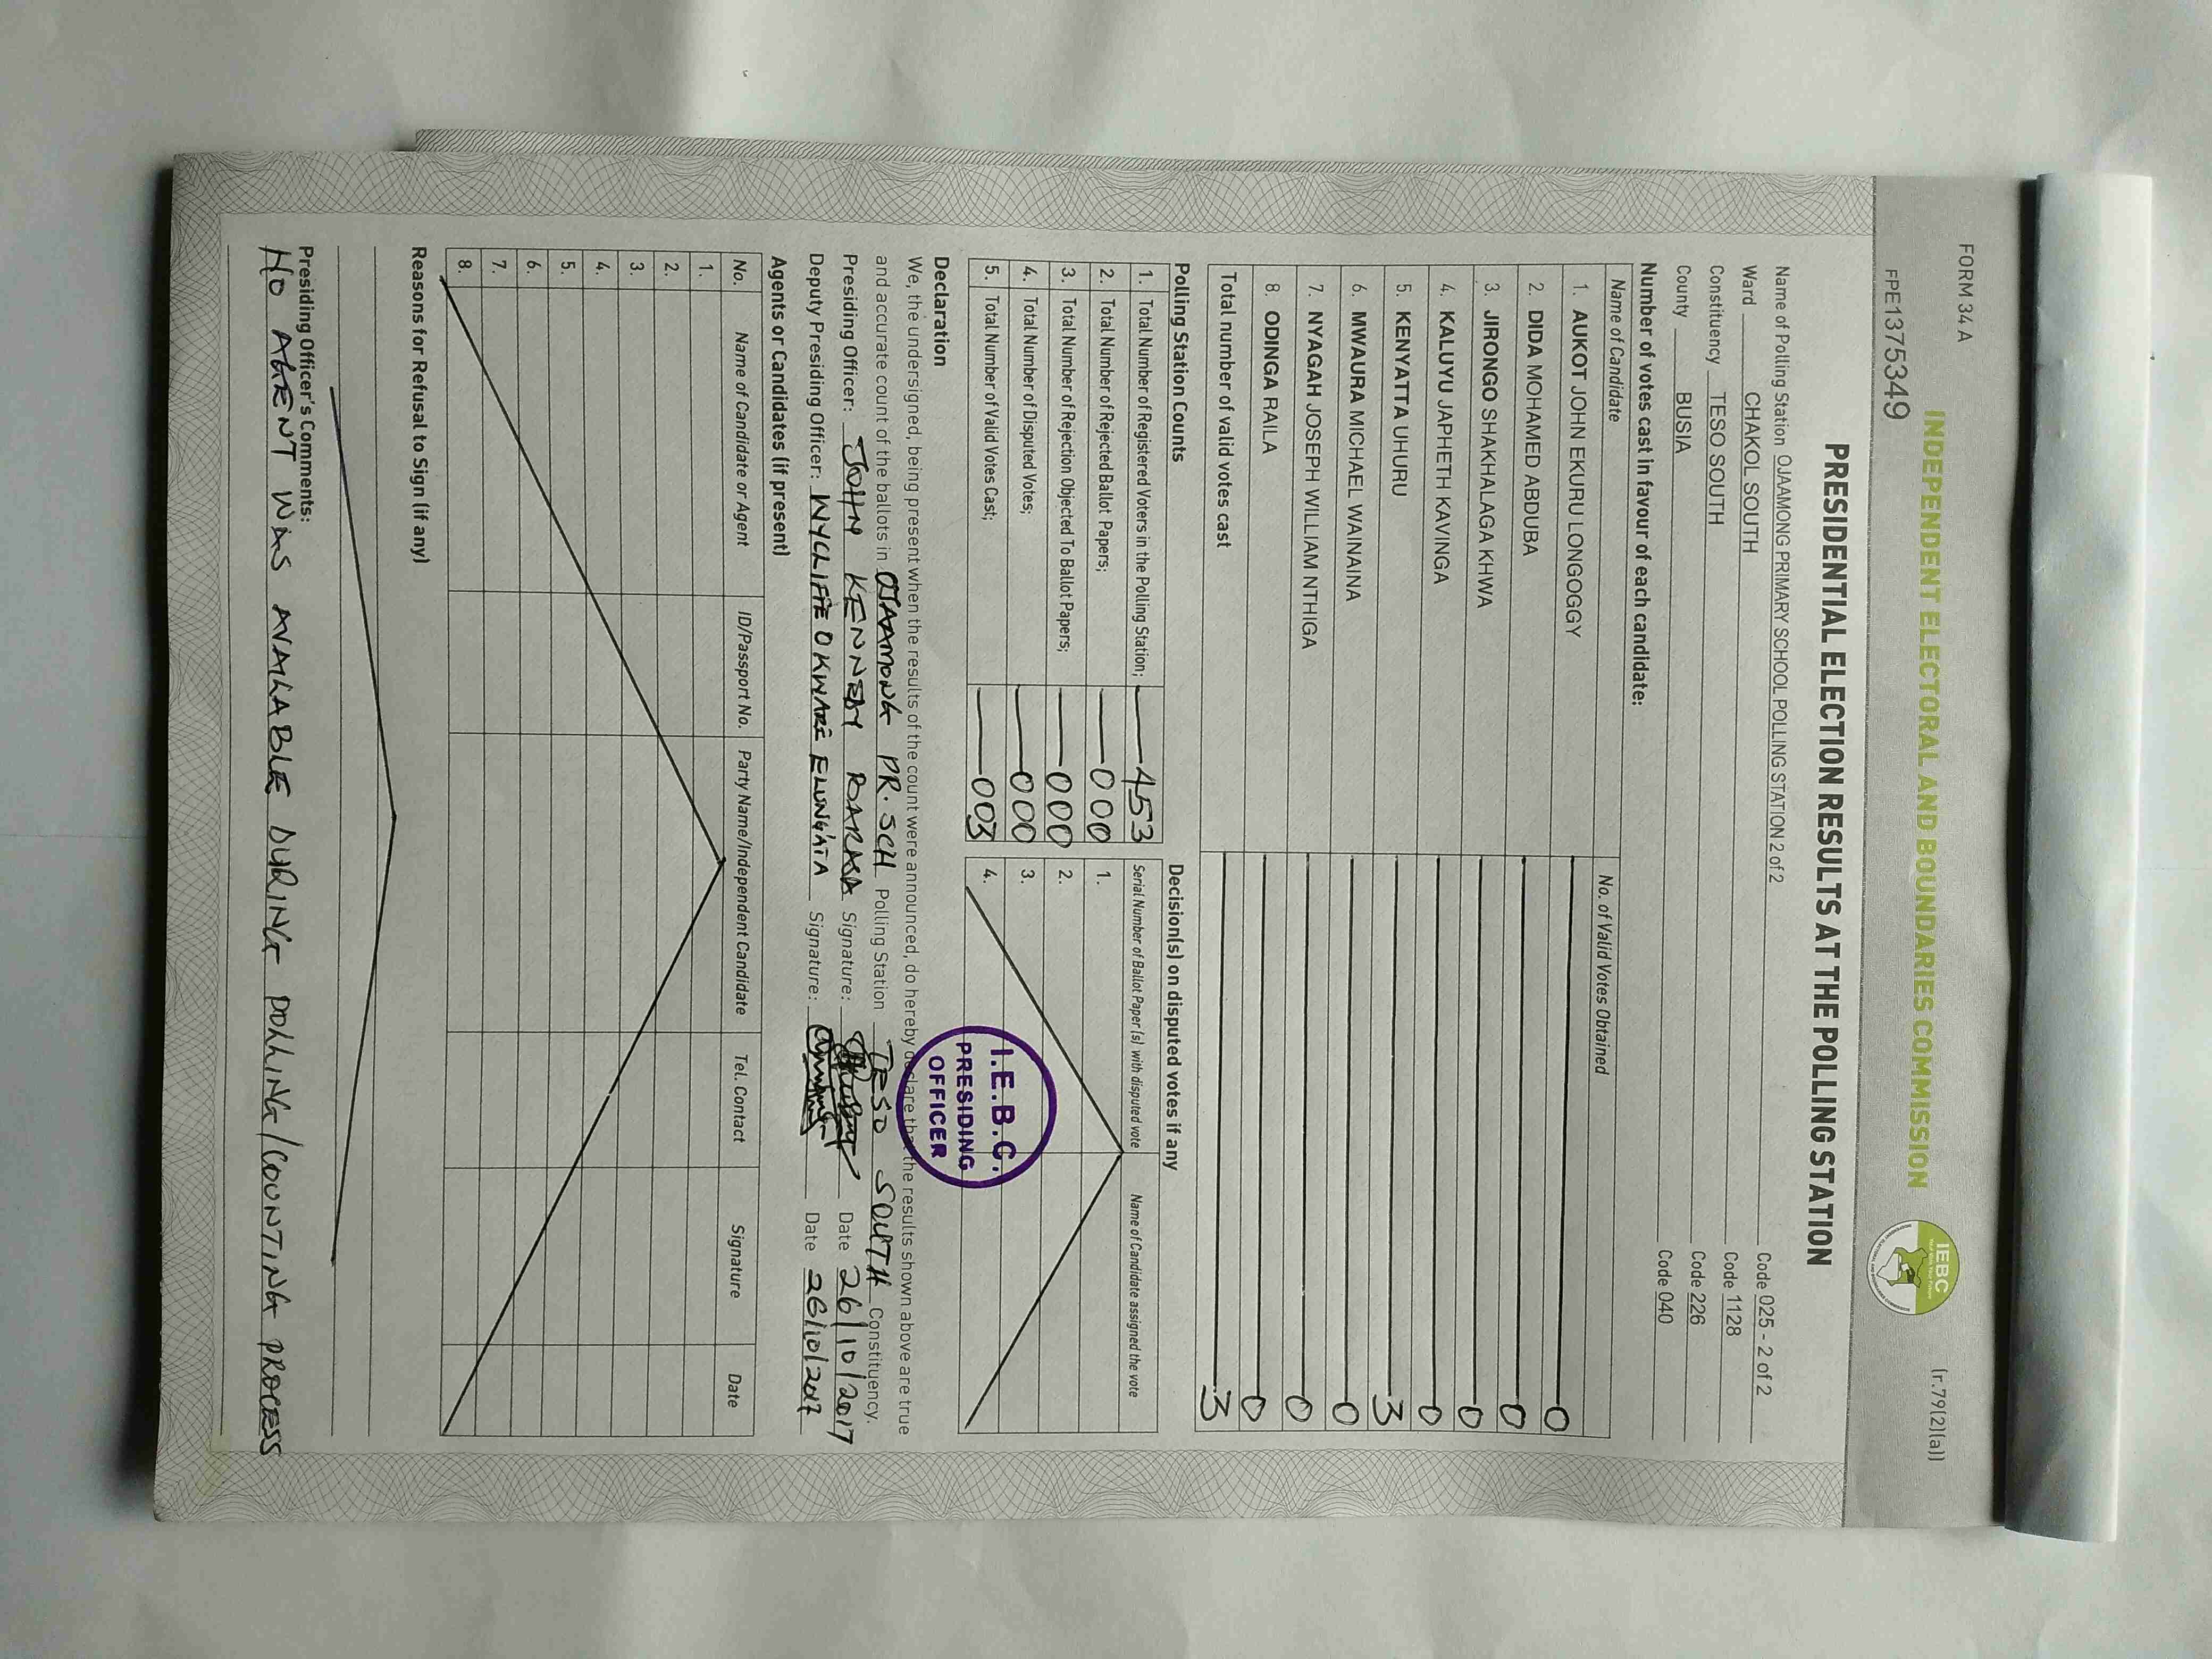 FORM 34 A
(r.79(2)(a))
INDEPENDENT ELECTORAL AND BOUNDARIES COMMISSION
IEBC
FPE1375349
PRESIDENTIAL ELECTION RESULTS AT THE POLLING STATION
Name of Polling Station OJAAMONG PRIMARY SCHOOL POLLING STATION 2 of 2 Code 025 - 2 of 2
Ward CHAKOL SOUTH Code 1128
Constituency TESO SOUTH Code 226
County BUSIA Code 040
Number of votes cast in favour of each candidate:
Name of Candidate No. of Valid Votes Obtained
1. AUKOT JOHN EKURU LONGOGGY 0
2. DIDA MOHAMED ABDUBA 0
3. JIRONGO SHAKHALAGA KHWA 0
4. KALUYU JAPHETH KAVINGA 0
5. KENYATTA UHURU 3
6. MWAURA MICHAEL WAINAINA 0
7. NYAGAH JOSEPH WILLIAM NTHIGA 0
8. ODINGA RAILA 0
Total number of valid votes cast 3
Polling Station Counts
1. Total Number of Registered Voters in the Polling Station; 453
2. Total Number of Rejected Ballot Papers; 000
3. Total Number of Rejection Objected To Ballot Papers; 000
4. Total Number of Disputed Votes; 000
5. Total Number of Valid Votes Cast; 003
Decision(s) on disputed votes if any
Serial Number of Ballot Paper(s) with disputed vote Name of Candidate assigned the vote
1.
2.
3.
4.
I.E.B.C.
PRESIDING
OFFICER
Declaration
We, the undersigned, being present when the results of the count were announced, do hereby declare that the results shown above are true
and accurate count of the ballots in OJAAMONG PR. SCH Polling Station TESO SOUTH Constituency.
Presiding Officer: JOHN KENNEDY BARASA Signature: Date 26/10/2017
Deputy Presiding Officer: WYCLIFFE OKWARE ELUNG'ATA Signature: Date 26/10/2017
Agents or Candidates (if present)
No. Name of Candidate or Agent ID/Passport No. Party Name/Independent Candidate Tel. Contact Signature Date
1.
2.
3.
4.
5.
6.
7.
8.
Reasons for Refusal to Sign (if any)
Presiding Officer's Comments:
NO AGENT WAS AVAILABLE DURING POLLING/COUNTING PROCESS